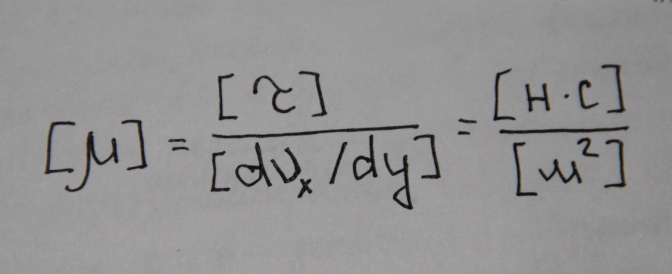 [μ] = [τ] / [dv_x/dy] = [н·с] / [м²]